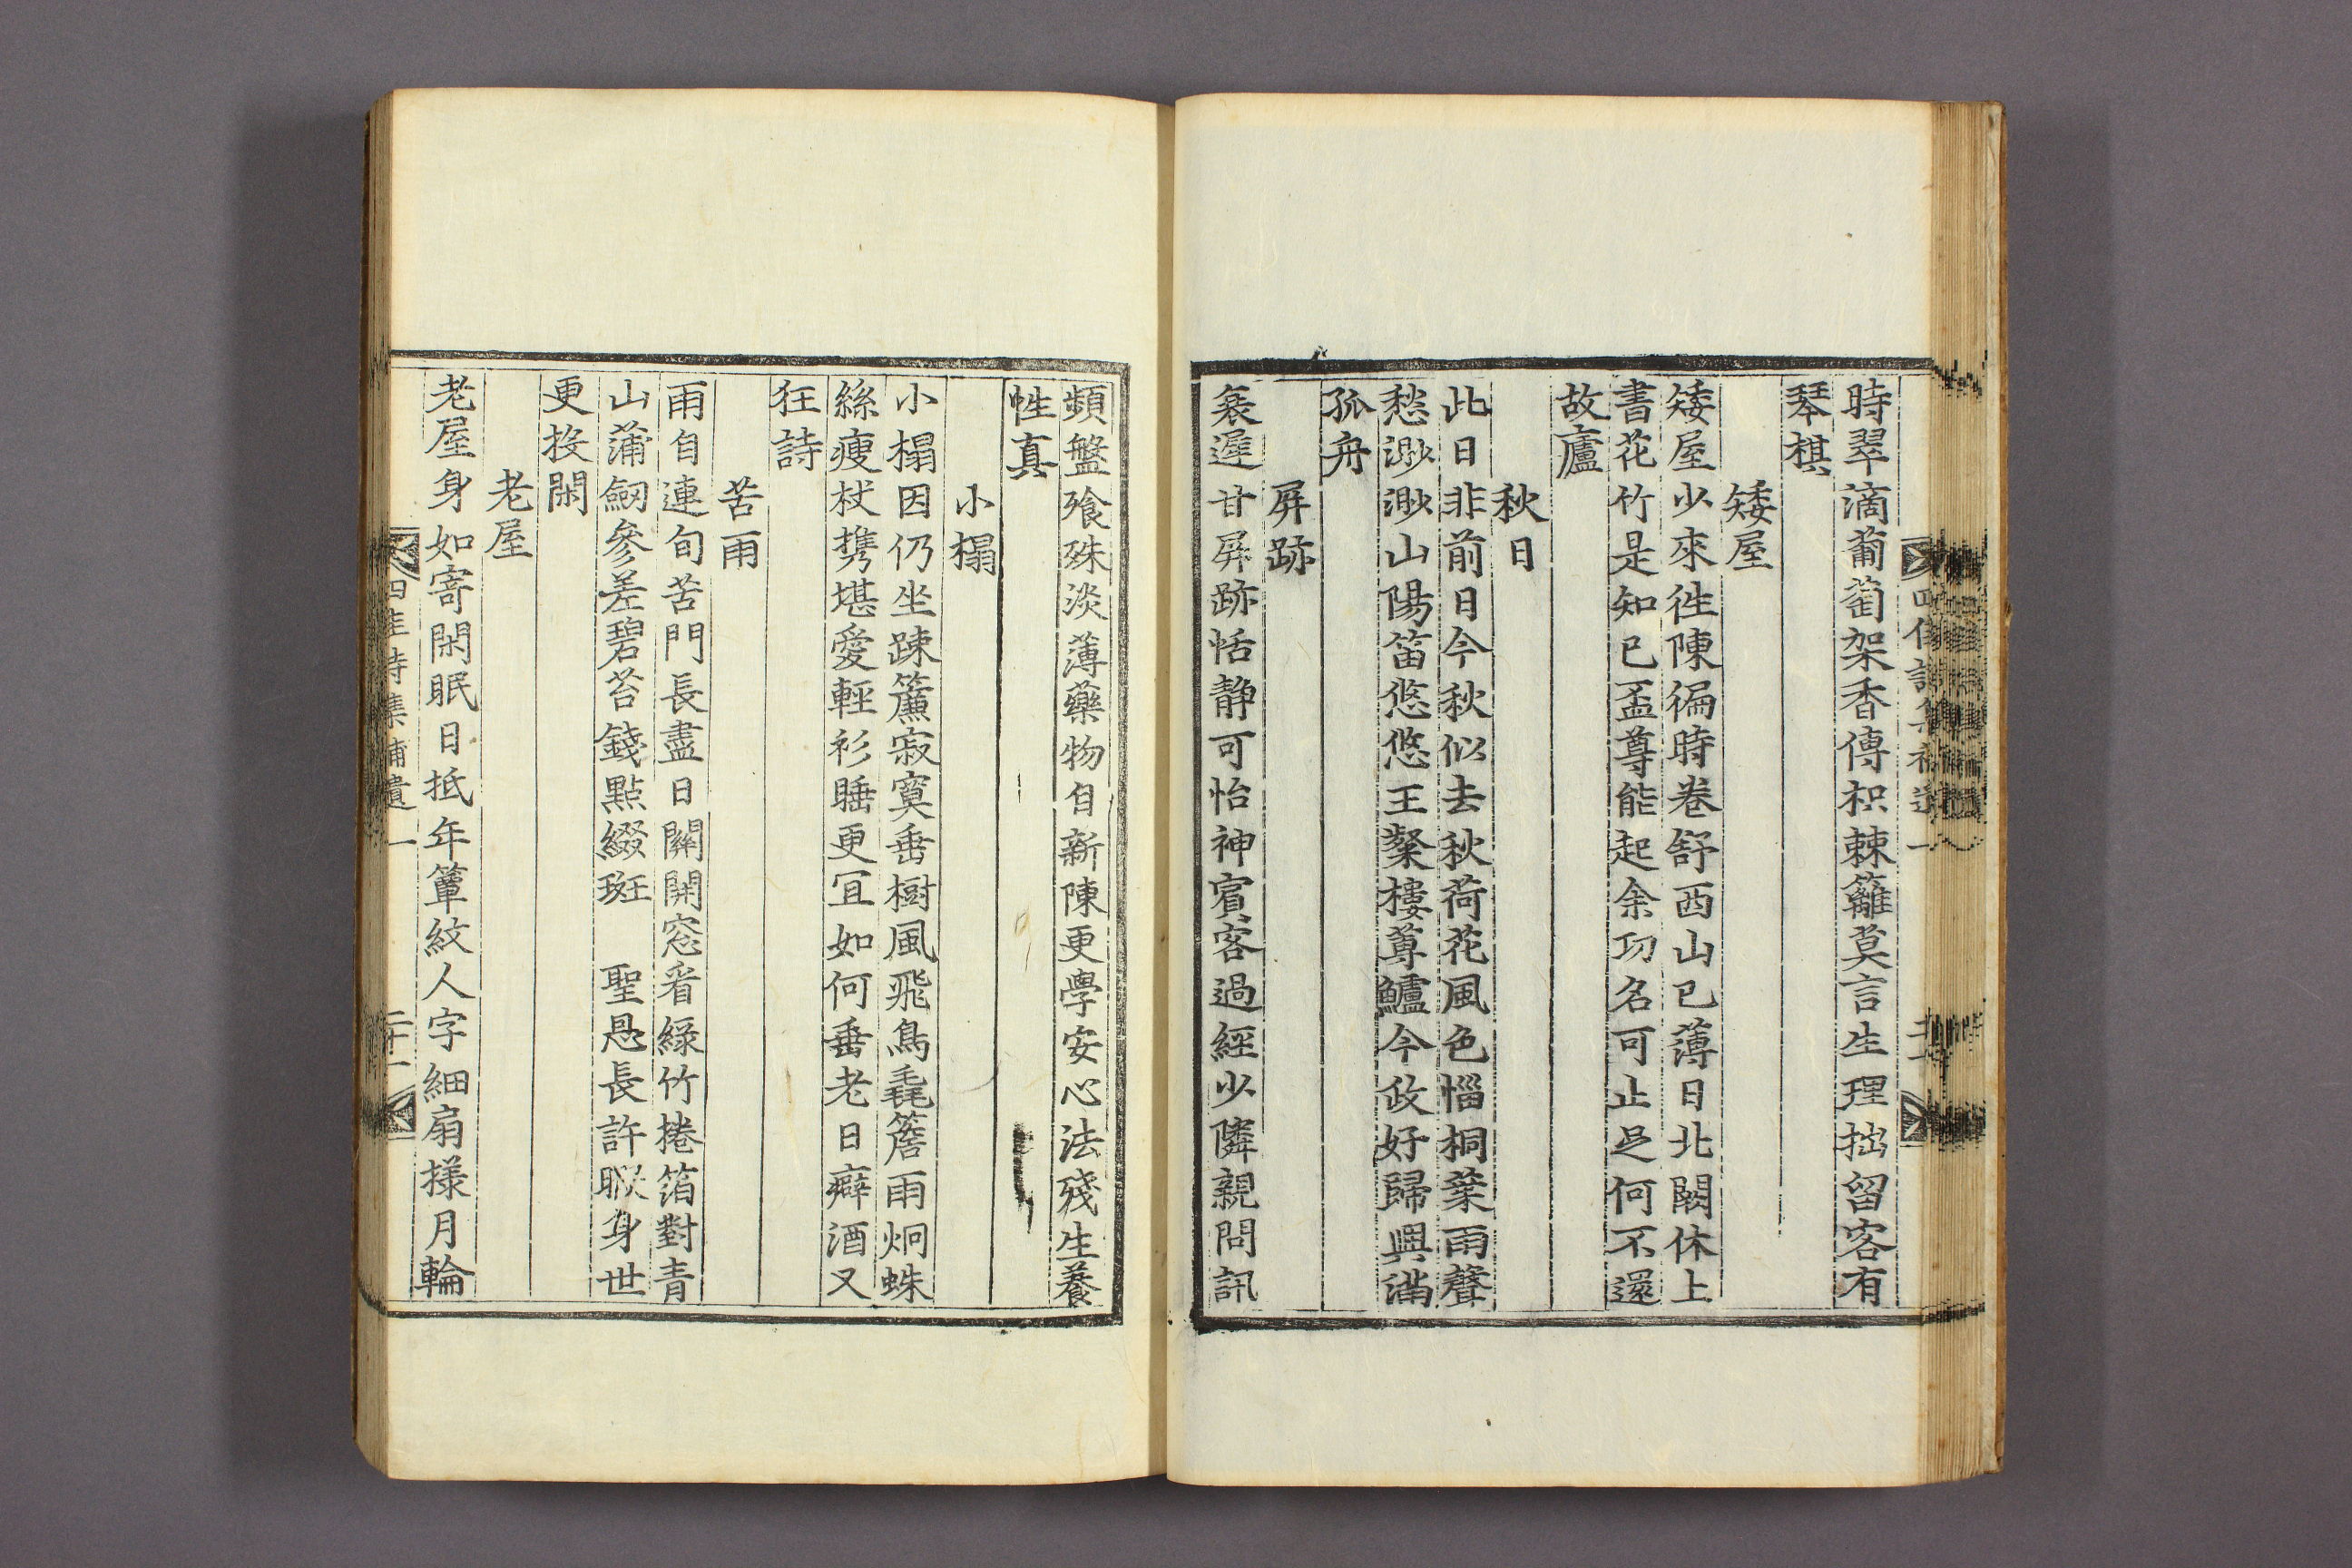 時翠滴葡萄架香傳枳棘籬莫言生理拙留客有
琴棋
矮屋
矮屋少來徃陳徧時卷舒西山已薄日北闕休上
書花竹是知已盃尊能起余功名可止足何不還
故廬
秋日
此日非前日今秋似去秋荷花風色惱桐葉雨聲
愁渺渺山陽笛悠悠王粲樓蓴鱸今政好歸興滿
孤舟
屛跡
衰遲甘屛跡恬靜可怡神賓客過經少隣親問訊
頻盤飱殊淡薄藥物自新陳更學安心法殘生養
性真
小榻
小榻因仍坐踈簾寂寞垂樹風飛鳥毳簷雨炯蛛
絲瘦杖携堪愛輕衫睡更冝如何垂老日癖酒又
狂詩
苦雨
雨自連旬苦門長盡日關開窓看綠竹捲箔對青
山蒲劒參差碧苔錢點綴斑　聖恩長許厭身世
更投閑
老屋
老屋身如寄閑眠日抵年簟紋人字細扇㨾月輪
四佳詩集補遺一
二十一